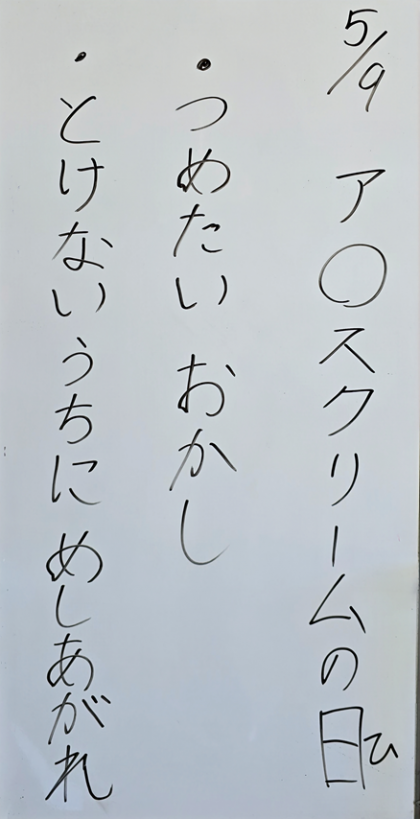 5/9 ア〇スクリームの日ひ
・つめたい おかし
・とけないうちに めしあがれ